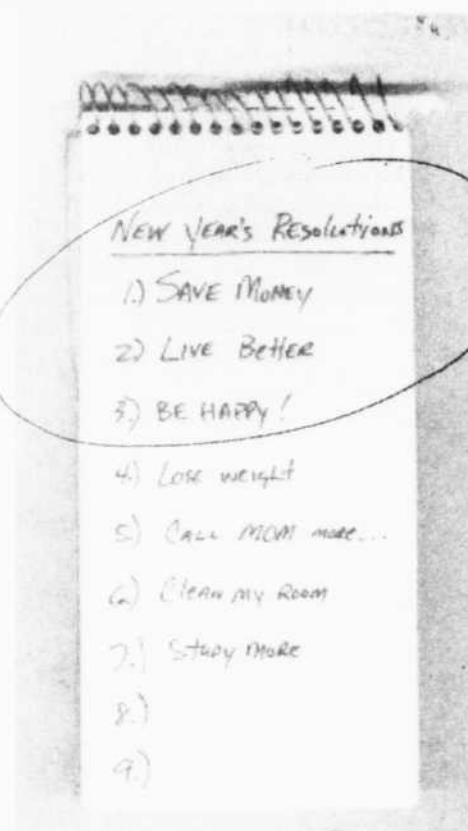 New Year's Resolutions
1.) Save Money
2.) Live Better
3.) Be Happy!
4.) Lose weight
5.) Call Mom more...
6.) Clean my Room
7.) Study More
8.)
9.)